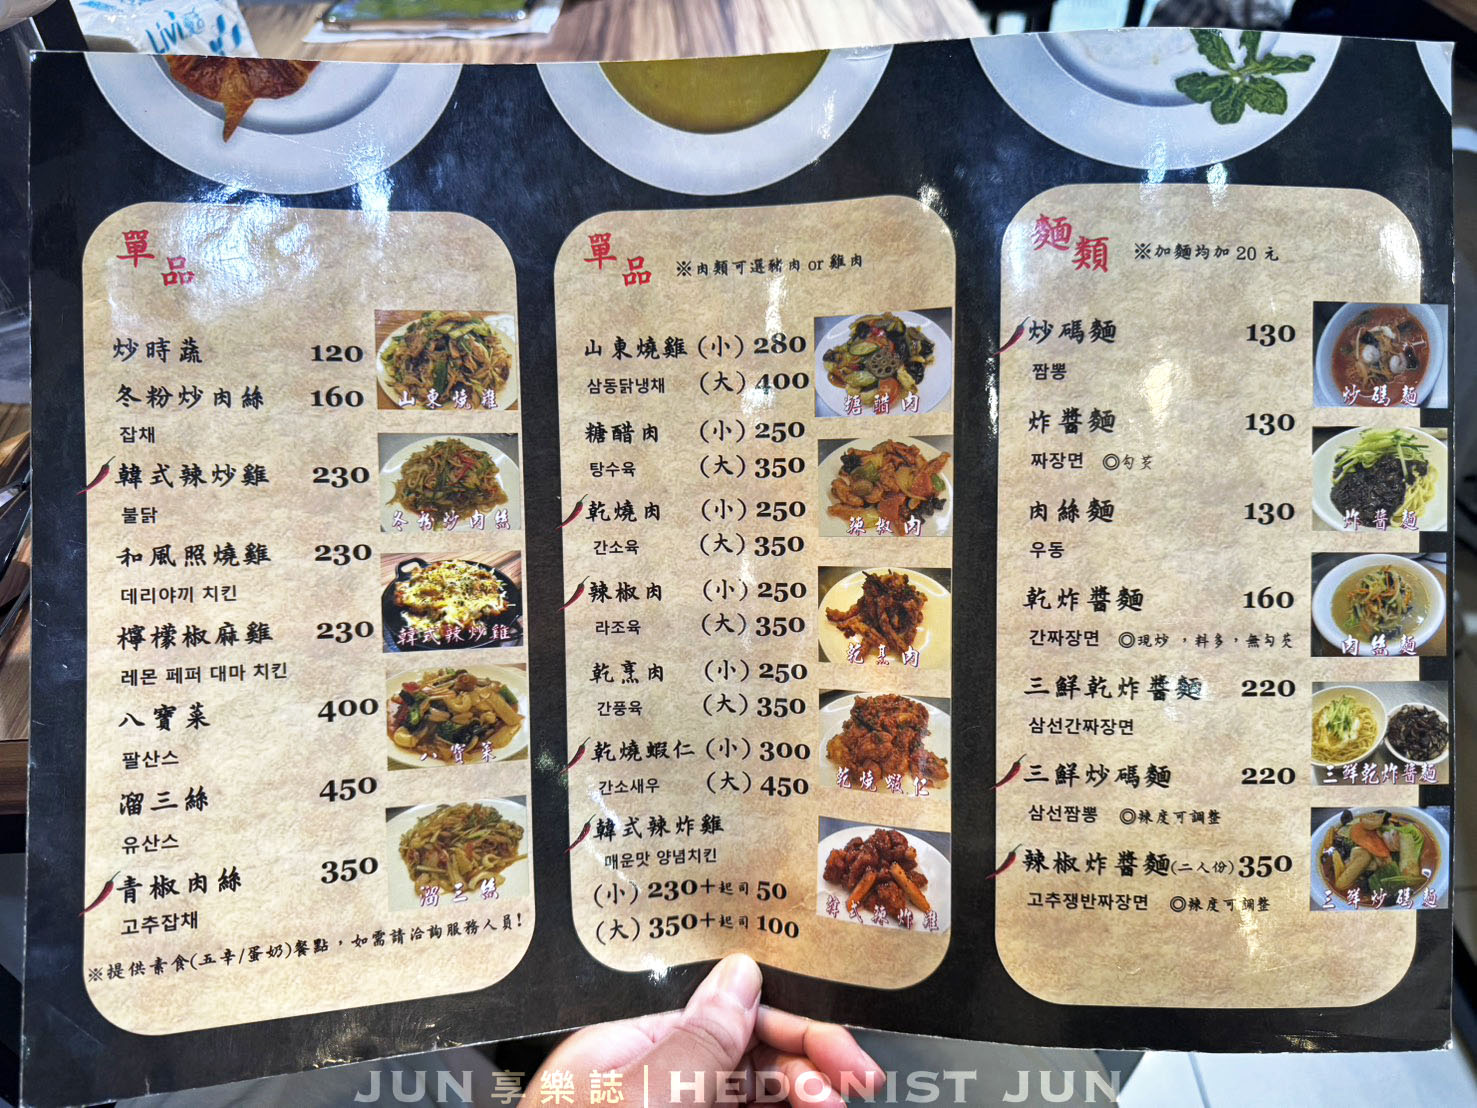 Livi
單品
炒時蔬 120
冬粉炒肉絲 160
잡채
韓式辣炒雞 230
불닭
和風照燒雞 230
데리야끼 치킨
檸檬椒麻雞 230
레몬 페퍼 대마 치킨
八寶菜 400
팔산스
溜三絲 450
유산스
青椒肉絲 350
고추잡채
※提供素食(五辛/蛋奶)餐點，如需請洽詢服務人員!
山東燒雞
冬粉炒肉絲
韓式辣炒雞
八寶菜
溜三絲
單品 ※肉類可選豬肉 or 雞肉
山東燒雞 (小) 280
삼동닭냉채 (大) 400
糖醋肉 (小) 250
탕수육 (大) 350
乾燒肉 (小) 250
간소육 (大) 350
辣椒肉 (小) 250
라조육 (大) 350
乾烹肉 (小) 250
간풍육 (大) 350
乾燒蝦仁 (小) 300
간소새우 (大) 450
韓式辣炸雞
매운맛 양념치킨
(小) 230+起司 50
(大) 350+起司 100
糖醋肉
辣椒肉
乾烹肉
乾燒蝦仁
韓式辣炸雞
麵類 ※加麵均加 20 元
炒碼麵 130
짬뽕
炸醬麵 130
짜장면 ◎勾芡
肉絲麵 130
우동
乾炸醬麵 160
간짜장면 ◎現炒，料多，無勾芡
三鮮乾炸醬麵 220
삼선간짜장면
三鮮炒碼麵 220
삼선짬뽕 ◎辣度可調整
辣椒炸醬麵(二人份) 350
고추쟁반짜장면 ◎辣度可調整
炒碼麵
炸醬麵
肉絲麵
三鮮乾炸醬麵
三鮮炒碼麵
JUN享樂誌 | HEDONIST JUN